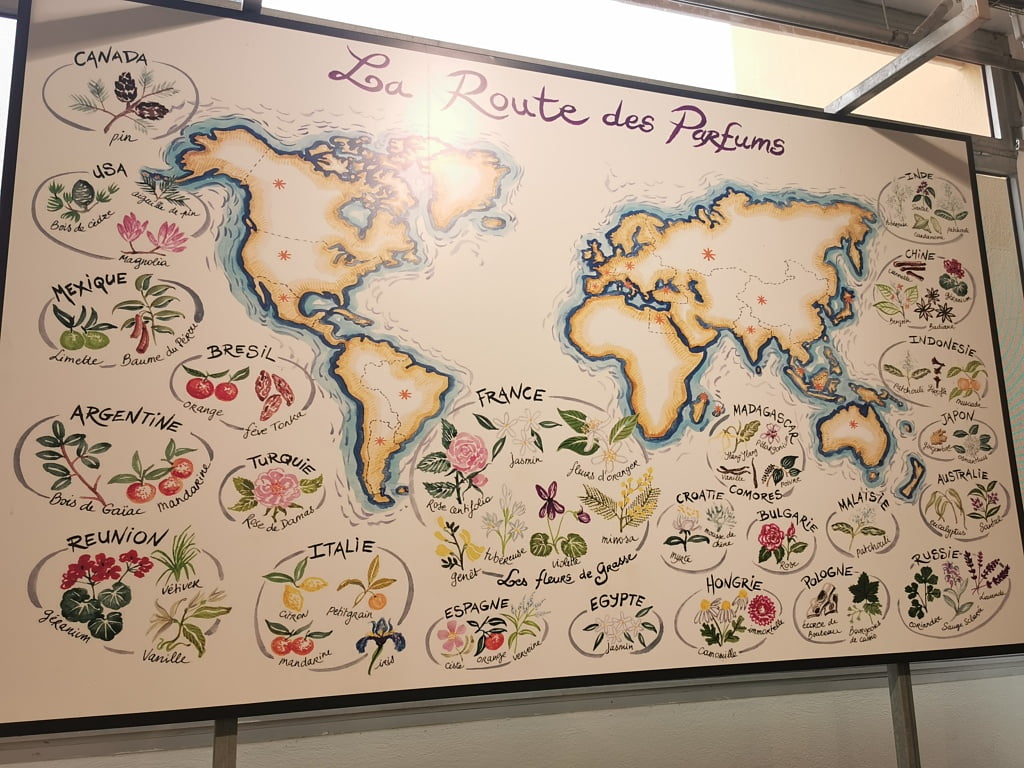 La Route des Parfums
CANADA
pin
USA
Bois de cèdre
aiguille de pin
Magnolia
MEXIQUE
Limette
Baume du Pérou
BRESIL
orange
fève Tonka
ARGENTINE
Bois de Gaïac
Mandarine
TURQUIE
Rose de Damas
REUNION
géranium
Vétiver
Vanille
ITALIE
Citron
Petitgrain
mandarine
iris
FRANCE
Rose centifolia
Jasmin
fleurs d'oranger
genêt
tubéreuse
violette
mimosa
Les fleurs de Grasse
ESPAGNE
ciste
orange
verveine
EGYPTE
Jasmin
MADAGASCAR
Ylang Ylang
Vanille
Poivre
COMORES
CROATIE
myrte
mousse de chêne
BULGARIE
Rose
MALAISIE
Patchouli
HONGRIE
Camomille
immortelle
POLOGNE
écorce de Bouleau
Bourgeons de cassis
RUSSIE
coriandre
Sauge Sclarée
Lavande
INDE
Cardamome
patchouli
CHINE
Cannelle
géranium
Benjoin
Badiane
INDONESIE
Patchouli
Girofle
Muscade
JAPON
Gingembre
osmanthus
AUSTRALIE
eucalyptus
Santal